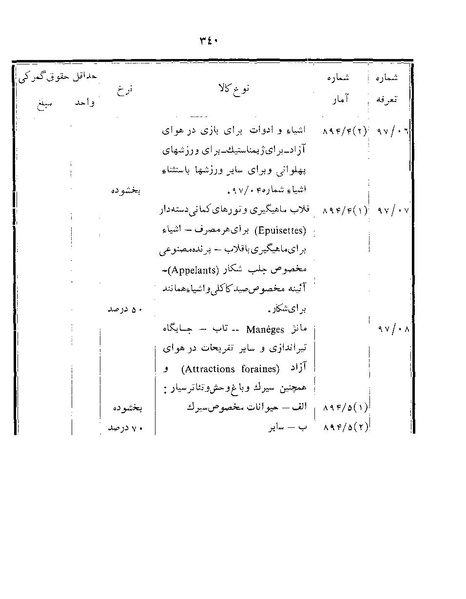 ۳۴۰
شماره تعرفه شماره آمار نوع کالا نرخ حداقل حقوق گمرکی واحد مبلغ
۹۷/۰۶ ۸۹۴/۴(۲) اشیاء و ادوات برای بازی در هوای
آزاد-برای ژیمناستیک-برای ورزشهای
پهلوانی وبرای سایر ورزشها باستثناء
اشیاء شماره ۹۷/۰۴. بخشوده
۹۷/۰۷ ۸۹۴/۴(۱) قلاب ماهیگیری و تورهای کمانی دسته‌دار
(Epuisettes) برای هر مصرف - اشیاء
برای ماهیگیری با قلاب - برنده مصنوعی
مخصوص جلب شکار (Appelants)-
آئینه مخصوص صید کاکلی و اشیاء همانند
برای شکار. ۵۰ درصد
۹۷/۰۸ مانژ Manèges -- تاب - جایگاه
تیراندازی و سایر تفریحات در هوای
آزاد (Attractions foraines) و
همچنین سیرک و باغ وحش و تئاتر سیار :
۸۹۴/۵(۱) الف - حیوانات مخصوص سیرک بخشوده
۸۹۴/۵(۲) ب - سایر ۷۰ درصد